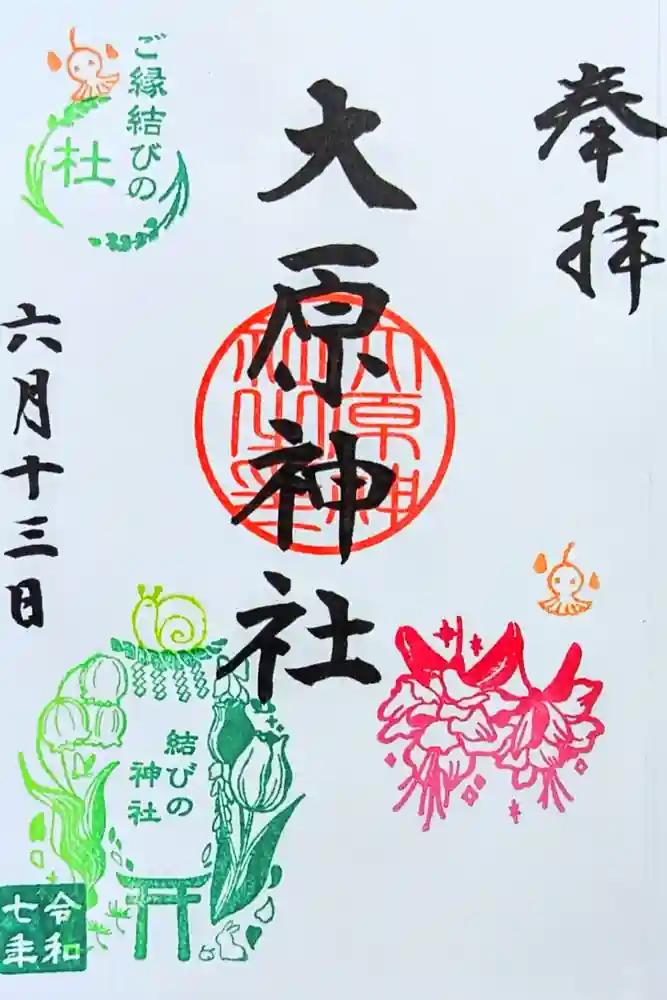 奉拝
大原神社
ご縁結びの
杜
六月十三日
結びの
神社
令和
七年